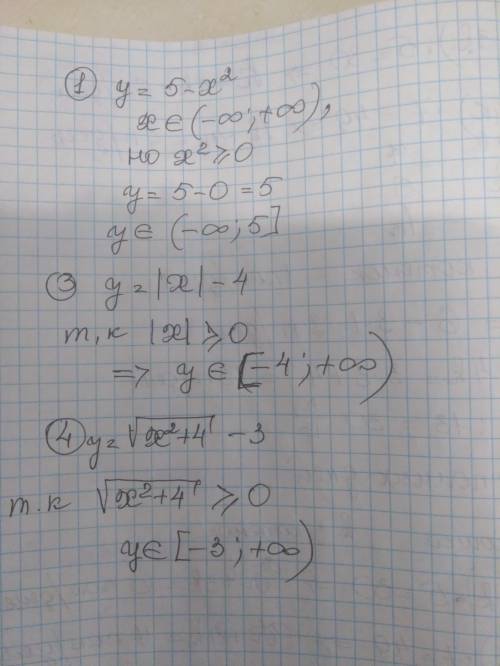 ① y = 5 - x²
x ∈ (-∞; +∞),
но x² ⩾ 0
y = 5 - 0 = 5
y ∈ (-∞; 5]
③ y = |x| - 4
т.к |x| ⩾ 0
=> y ∈ [-4; +∞)
④ y = √(x²+4) - 3
т.к √(x²+4) ⩾ 0
y ∈ [-3; +∞)